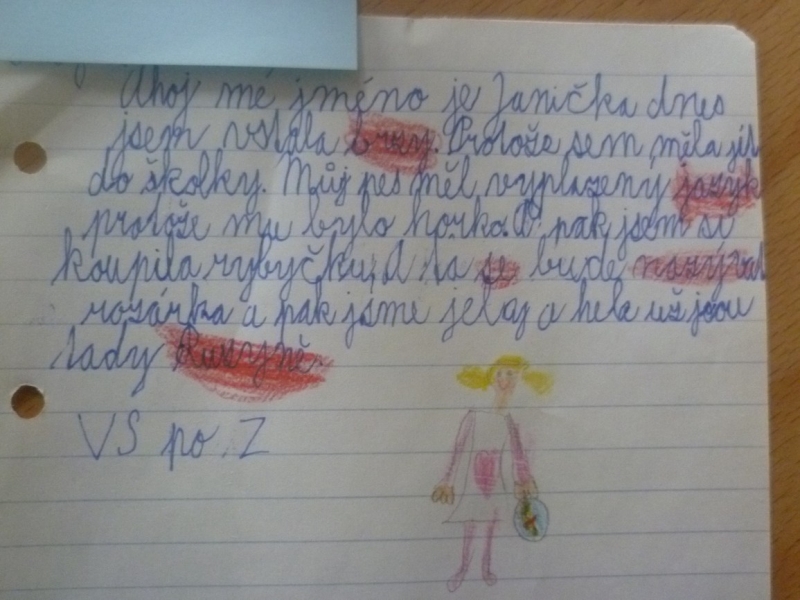 Ahoj mé jméno je Janička dnes
jsem vstala brzy. Protože sem měla jít
do školky. Můj pes měl vyplazený jazyk
protože mu bylo horko. A pak jsem si
koupila rybyčku. A ta se bude nazývat
rozárka a pak jsme jeli a hele už jsou
tady
VS po Z